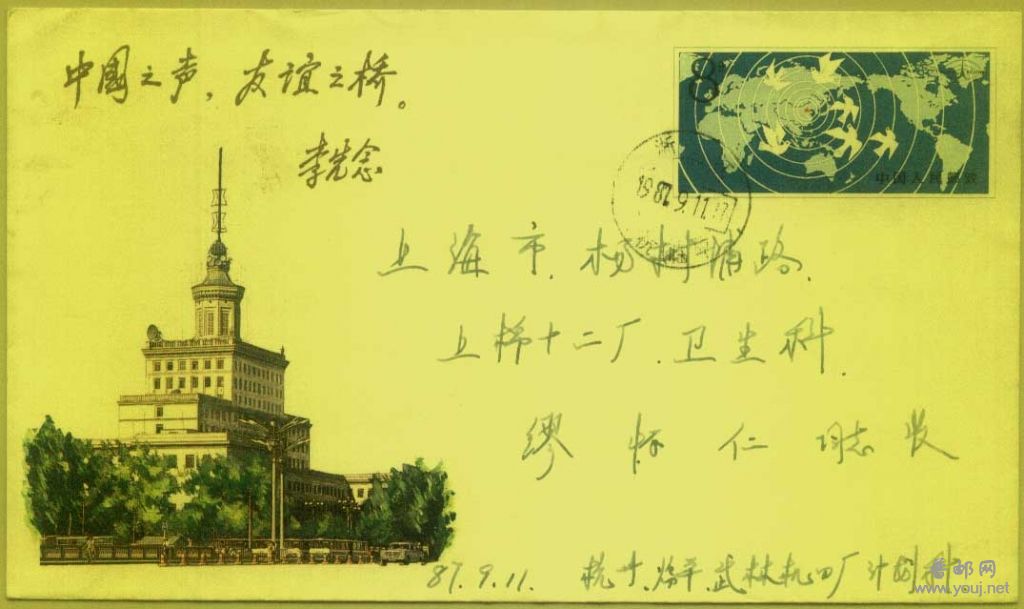 中国之声，友谊之桥。
李先念
8
中国人民邮政
1987.9.11.
上海市.杨树浦路.
上棉十二厂.卫生科.
缪怀仁 同志收
87.9.11. 杭州 武林机四厂计划科
音邮网
www.youj.net